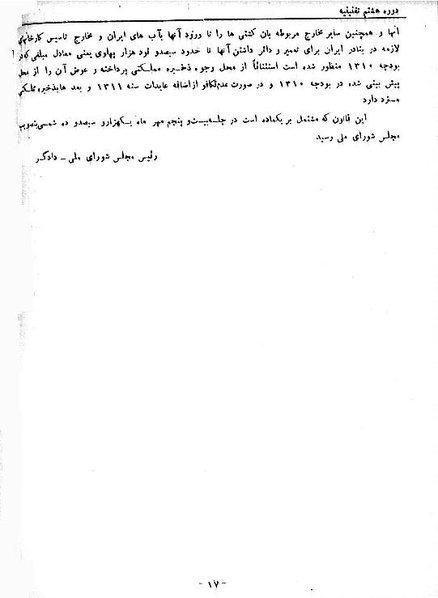 دوره هشتم تقنینیه
آنها و همچنین سایر مخارج مربوطه بان کشتی ها را تا ورود آنها بآب های ایران و مخارج تاسیس کارخانهای
لازمه در بنادر ایران برای تعمیر و دائر داشتن آنها تا حدود سیصدو نود هزار پهلوی یعنی معادل مبلغی که در
بودجه ۱۳۱۰ منظور شده است استثنائاً از محل وجوه ذخیره مملکتی پرداخته و عوض آن را از محل
پیش بینی شده در بودجه ۱۳۱۰ و در صورت عدم تکافو از اضافه عایدات سنه ۱۳۱۱ و بعد ها بذخیره مملکتی
مسترد دارد
این قانون که مشتمل بر یکماده است در جلسه بیست و پنجم مهر ماه یکهزارو سیصدو ده شمسی بتصویب
مجلس شورای ملی رسید
رئیس مجلس شورای ملی - دادگر
- ۱۷ -